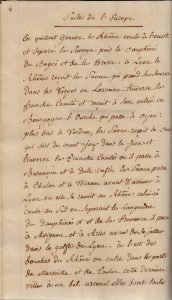 4
Suite de l'Europe
En quittant Geneve le Rhône coule à l'ouest
et separe la Savoye puis le Dauphiné
du Bugei et de la Bresse. à Lyon le
Rhône reçoit la Saone qui prend sa source
dans les Vosges en Lorraine traverse la
franche Comté et reçoit à son entrée en
Bourgogne l'Ouche qui passe à Dijon:
plus bas à Verdun, la Saone reçoit le Doux
qui sort du mont Joux dans le Jura et
traverse la franche Comté où il passe à
Besançon et à Dole. enfin la Saone passe
à Chalon et à Macon avant d'arriver à
Lyon où elle se réunit au Rhône. celui-ci
coule au Sud en separant le Languedoc
du Dauphiné et de la Provence. il passe
à Avignon, et à Arles avant de se jetter
dans le golfe de Lyon. à l'est des
bouches du Rhône on entre dans les ports
de Marseille et de Toulon. cette derniere
ville a un bel arsenal. elle